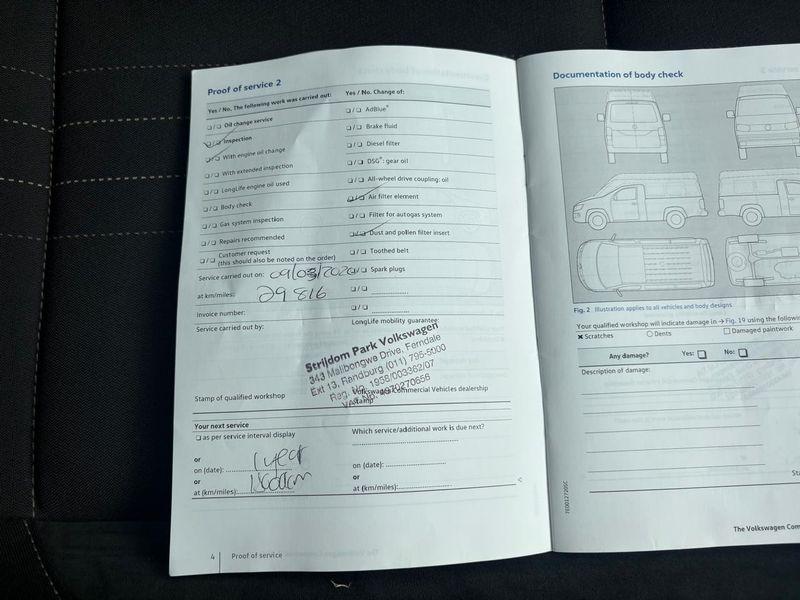 Proof of service 2
Yes / No. The following work was carried out:
Oil change service
Inspection
With engine oil change
With extended inspection
LongLife engine oil used
Body check
Gas system inspection
Repairs recommended
Customer request
(this should also be noted on the order)
Service carried out on:
at km/miles: 29 816
Invoice number:
Service carried out by:
Yes / No. Change of:
AdBlue®
Brake fluid
Diesel filter
DSG®: gear oil
All-wheel drive coupling: oil
Air filter element
Filter for autogas system
Dust and pollen filter insert
Toothed belt
Spark plugs
LongLife mobility guarantee:
Strijdom Park Volkswagen
343 Malibongwe Drive, Ferndale
Ext 13, Randburg (011) 795-5000
Reg. No. 1958/003362/07
VAT No. 4970270656
Stamp of qualified workshop
Volkswagen Commercial Vehicles dealership
stamp
Your next service
as per service interval display
or
on (date): 1 year
or
at (km/miles):
Which service/additional work is due next?
on (date):
or
at (km/miles):
4 Proof of service
Documentation of body check
Fig. 2 Illustration applies to all vehicles and body designs.
Your qualified workshop will indicate damage in → Fig. 19 using the
Scratches
Dents
Damaged paintwork
Any damage? Yes: No:
Description of damage:
The Volkswagen